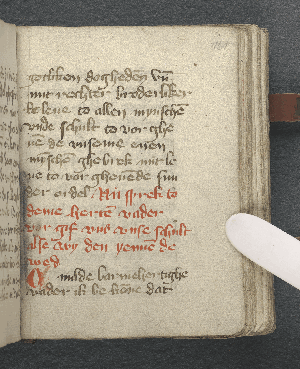 gotliken dogheden vn̄
mit rechter broderliker
leue to allen mynschē
vnde schult to vor ghe
uē de unseme euen
mynschē ghebrok mit le
ue to vor gheuende sun
der ordel. Nu sprek to
deme herten vader
vor gif vns vnse schult
alse wy den yennen de
wed
O milde barmehertighe
vader ik bekēne dat